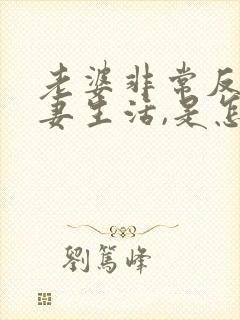 老婆非常反
妻生活,是怎
劉篤峰